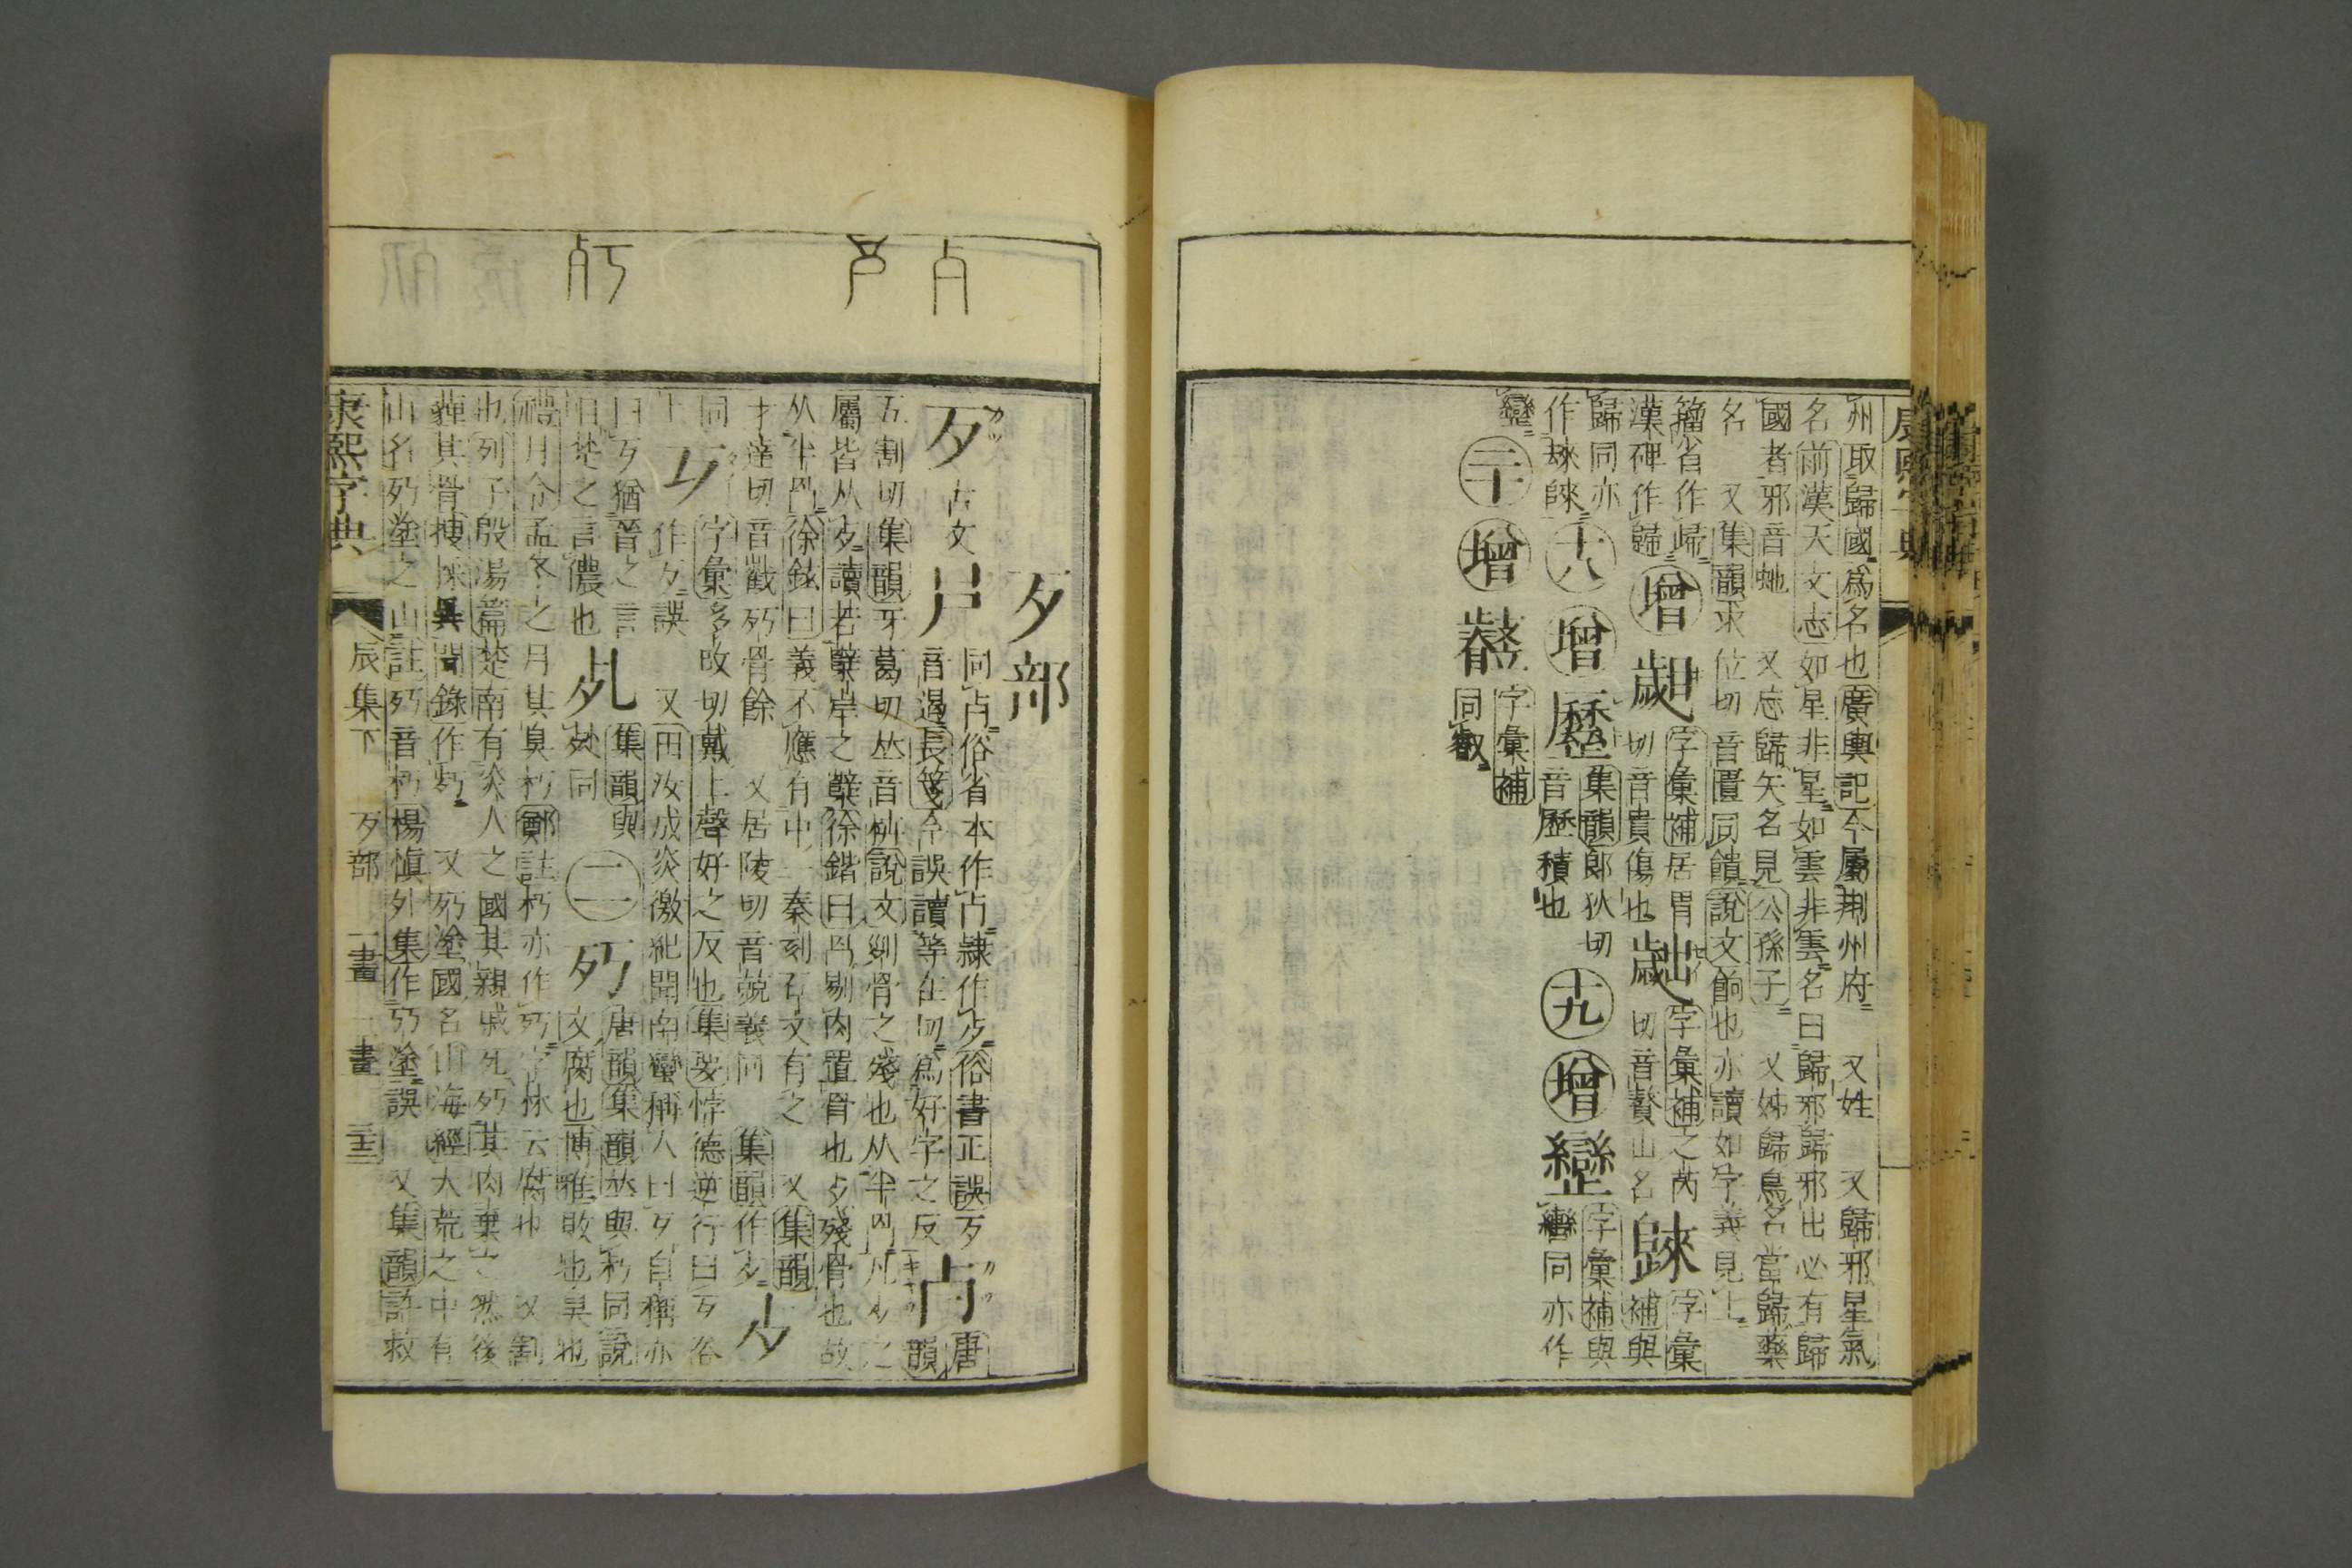 州取歸國爲名也廣輿記今屬荆州府 又姓 又歸邪星氣
名前漢天文志如星非星如雲非雲名曰歸邪歸邪出必有歸
國者邪音虵 又忘歸矢名見公孫子 又姊歸鳥名當歸藥
名 又集韻求位切音匱同饋說文餉也亦讀如字義見上
籀省作㱕
漢碑作歸
增
字彙補居胃
切音貴傷也
字彙補之芮
切音贅山名
字彙
補與
歸同亦
作
十八
增
歷
集韻郎狄切
音歷積也
十九
增
字彙補與
同亦作
二十
增
字彙補
同
歹部
歹
古文
同歺俗省本作歺隸作歺俗書正誤歹
音遏長箋今誤讀等在切爲好字之反
唐
韻
五割切集韻牙葛切𠀤音枿說文𠛱骨之殘也从半冎凡歺之
屬皆从歺讀若櫱岸之櫱徐鍇曰冎剔肉置骨也歺殘骨也故
从半冎徐鉉曰義不應有中一秦刻石文有之 又集韻
才達切音巀歺骨餘 又居陵切音兢義同 集韻作歺
同
上
字彙多改切戴上聲好之反也集要悖德逆行曰歹俗
作歹誤 又田汝成炎徼紀聞南蠻稱人曰歹自稱亦
曰歹猶晉之言
咱楚之言儂也
集韻與
同
二
歺
唐韻集韻𠀤與朽同說
文腐也博雅敗也臭也
禮月令孟冬之月其臭朽鄭註朽亦作㱙字林云腐也 又割
也列子殷湯篇楚南有炎人之國其親戚死㱙其肉棄之然後
薶其骨 又㱙塗國名山海經大荒之中有
山名㱙塗之山註㱙音朽楊愼外集作㱙塗誤 又集韻許救
康熙字典
辰集下 歹部 一畫 二畫